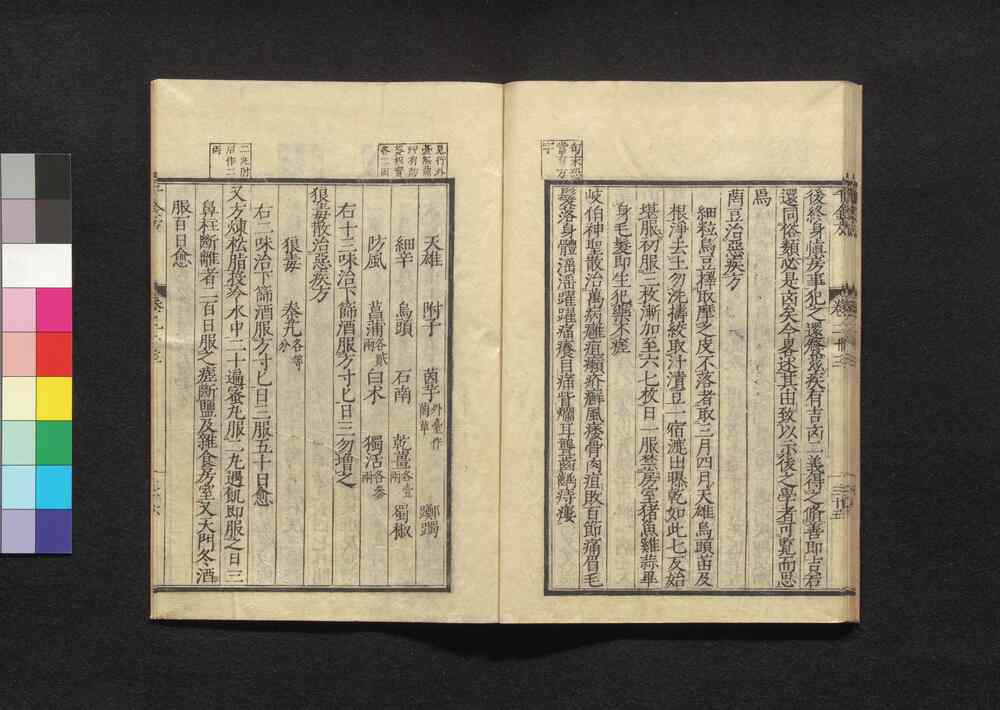 後終身慎房事犯之還發茲疾有吉凶二義得之修善即吉若
還同俗類必是凶矣今畧述其由致以示後之學者可覽而思
焉
豆治惡疾方
細粒烏豆擇取摩之皮不落者取三月四月天雄烏頭苗及
根淨去土勿洗擣絞取汁漬豆一宿漉出曝乾如此七反始
堪服初服三枚漸加至六七枚日一服禁房室猪魚雞蒜畢
身毛髮即生犯藥不瘥
岐伯神聖散治萬病癰疽癩疥癬風痿骨肉疽敗百節痛眉毛
髮落身體淫淫躍躍痛癢目痛眥爛耳聾齒齲痔瘻
天雄 附子 茵芋外臺作䕡草 躑躅
細辛 烏頭 石南 乾薑各壹兩 蜀椒
防風 菖蒲各貳兩 白术 獨活各參兩
右十三味治下篩酒服方寸匕日三勿增之
狼毒散治惡疾方
狼毒 秦艽各等分
右二味治下篩酒服方寸匕日三服五十日愈
又方煉松脂投冷水中二十遍蜜丸服二丸遇飢即服之日三
鼻柱斷離者二百日服之瘥斷鹽及雜食房室又天門冬酒
服百日愈